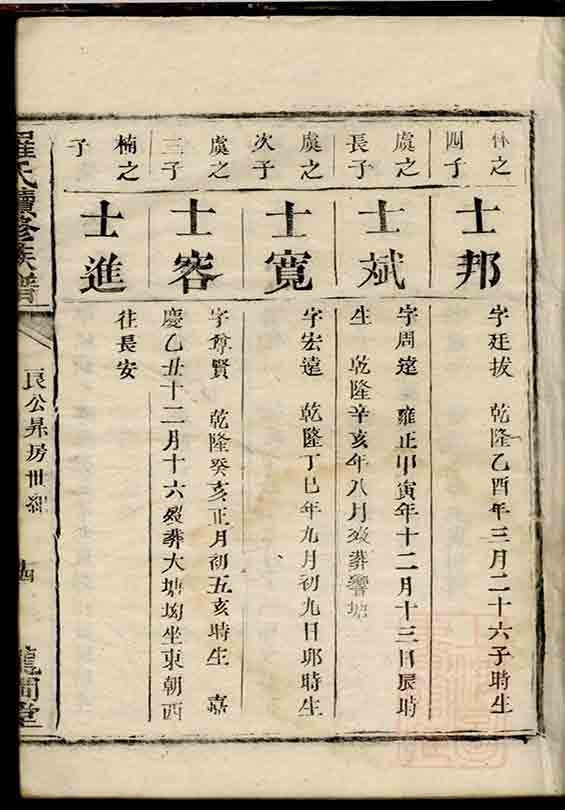 林之
四子
士邦
字廷拔 乾隆乙酉年三月二十六子時生
虞之
長子
士斌
字周達 雍正甲寅年十二月十三日辰時
生 乾隆辛亥年八月歿葬響塘
虞之
次子
士寬
字宏達 乾隆丁巳年九月初九日邜時生
虞之
三子
士容
字尊賢 乾隆癸亥正月初五亥時生 嘉
慶乙丑十二月十六歿葬大塘坳坐東朝西
楠之
子
士進
往長安
羅氏續修族譜
良公昇房世紀
十四